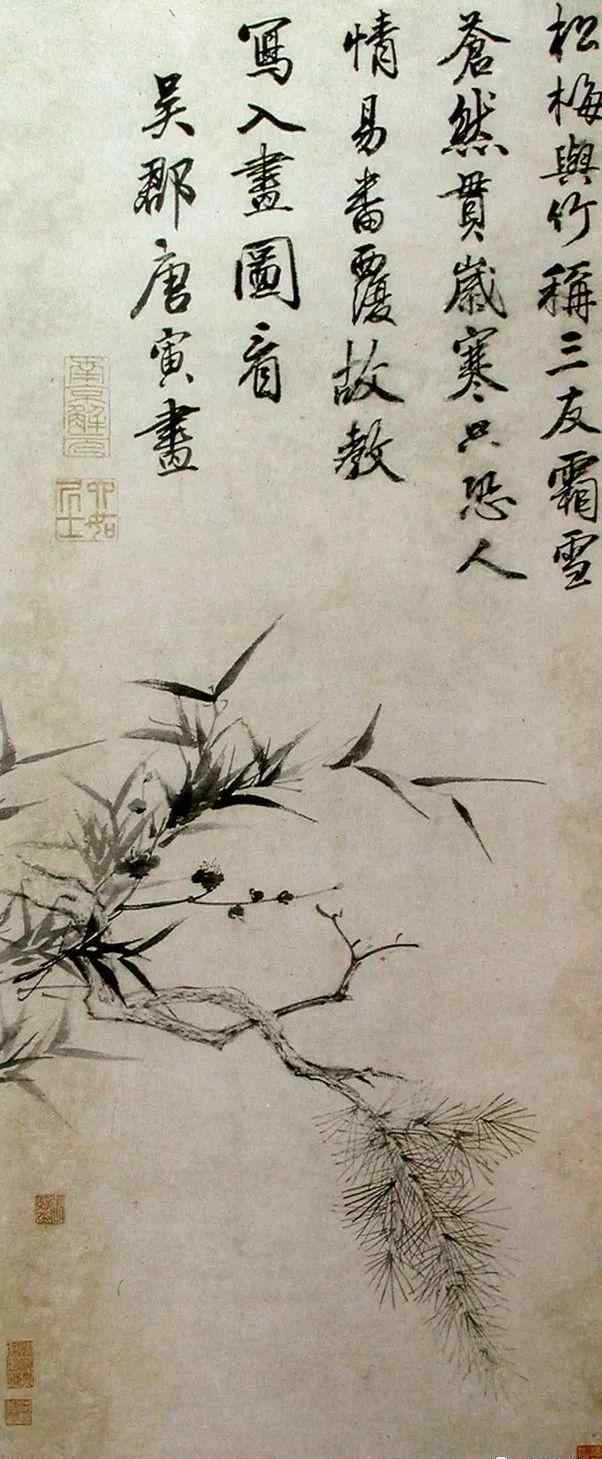 松梅與竹稱三友霜雪
蒼然貫歲寒只恐人
情易番覆故教
寫入畫圖看
吳郡唐寅畫
南京解元
六如居士